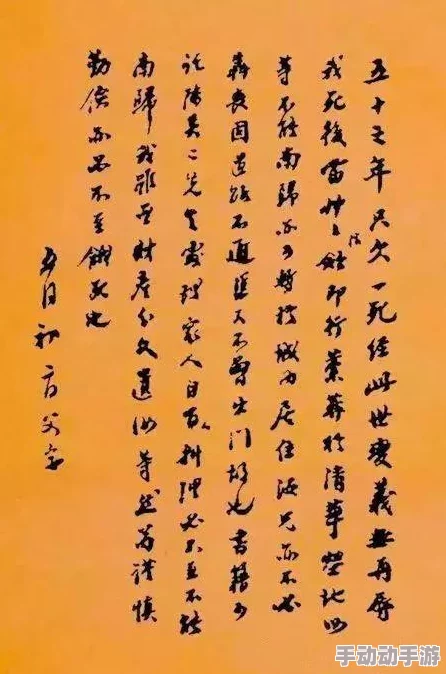 五十之年只欠一死經此世變義無再辱
我死後當艸々棺斂即行藁葬於清華塋地汝
等不能南歸亦可暫於城內居住汝兄亦不必
奔喪因道路不通渠又不曾出門故也書籍可
託陳吳二先生處理家人自有人料理必不至不能
南歸我雖無財產分文遺汝等然苟謹慎
勤儉亦必不至餓死也
五月初二日父字
手动动手游